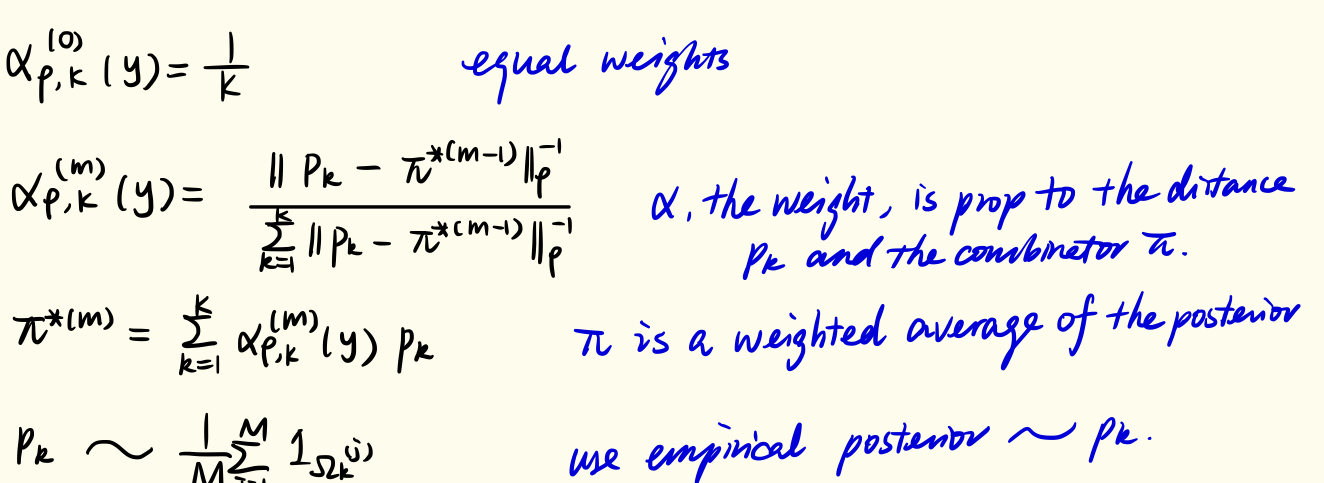 α_{ρ,k}^{(0)}(y) = 1/K equal weights
α_{ρ,k}^{(m)}(y) = ‖p_k − π^{*(m−1)}‖_ρ^{−1} / Σ_{k=1}^{K} ‖p_k − π^{*(m−1)}‖_ρ^{−1} α, the weight, is prop to the distance
p_k and the combinator π.
π^{*(m)} = Σ_{k=1}^{K} α_{ρ,k}^{(m)}(y) p_k π is a weighted average of the posterior
p_k ∼ 1/M Σ^{M} 1_{Ω_k^{(j)}} use empirical posterior ∼ p_k.